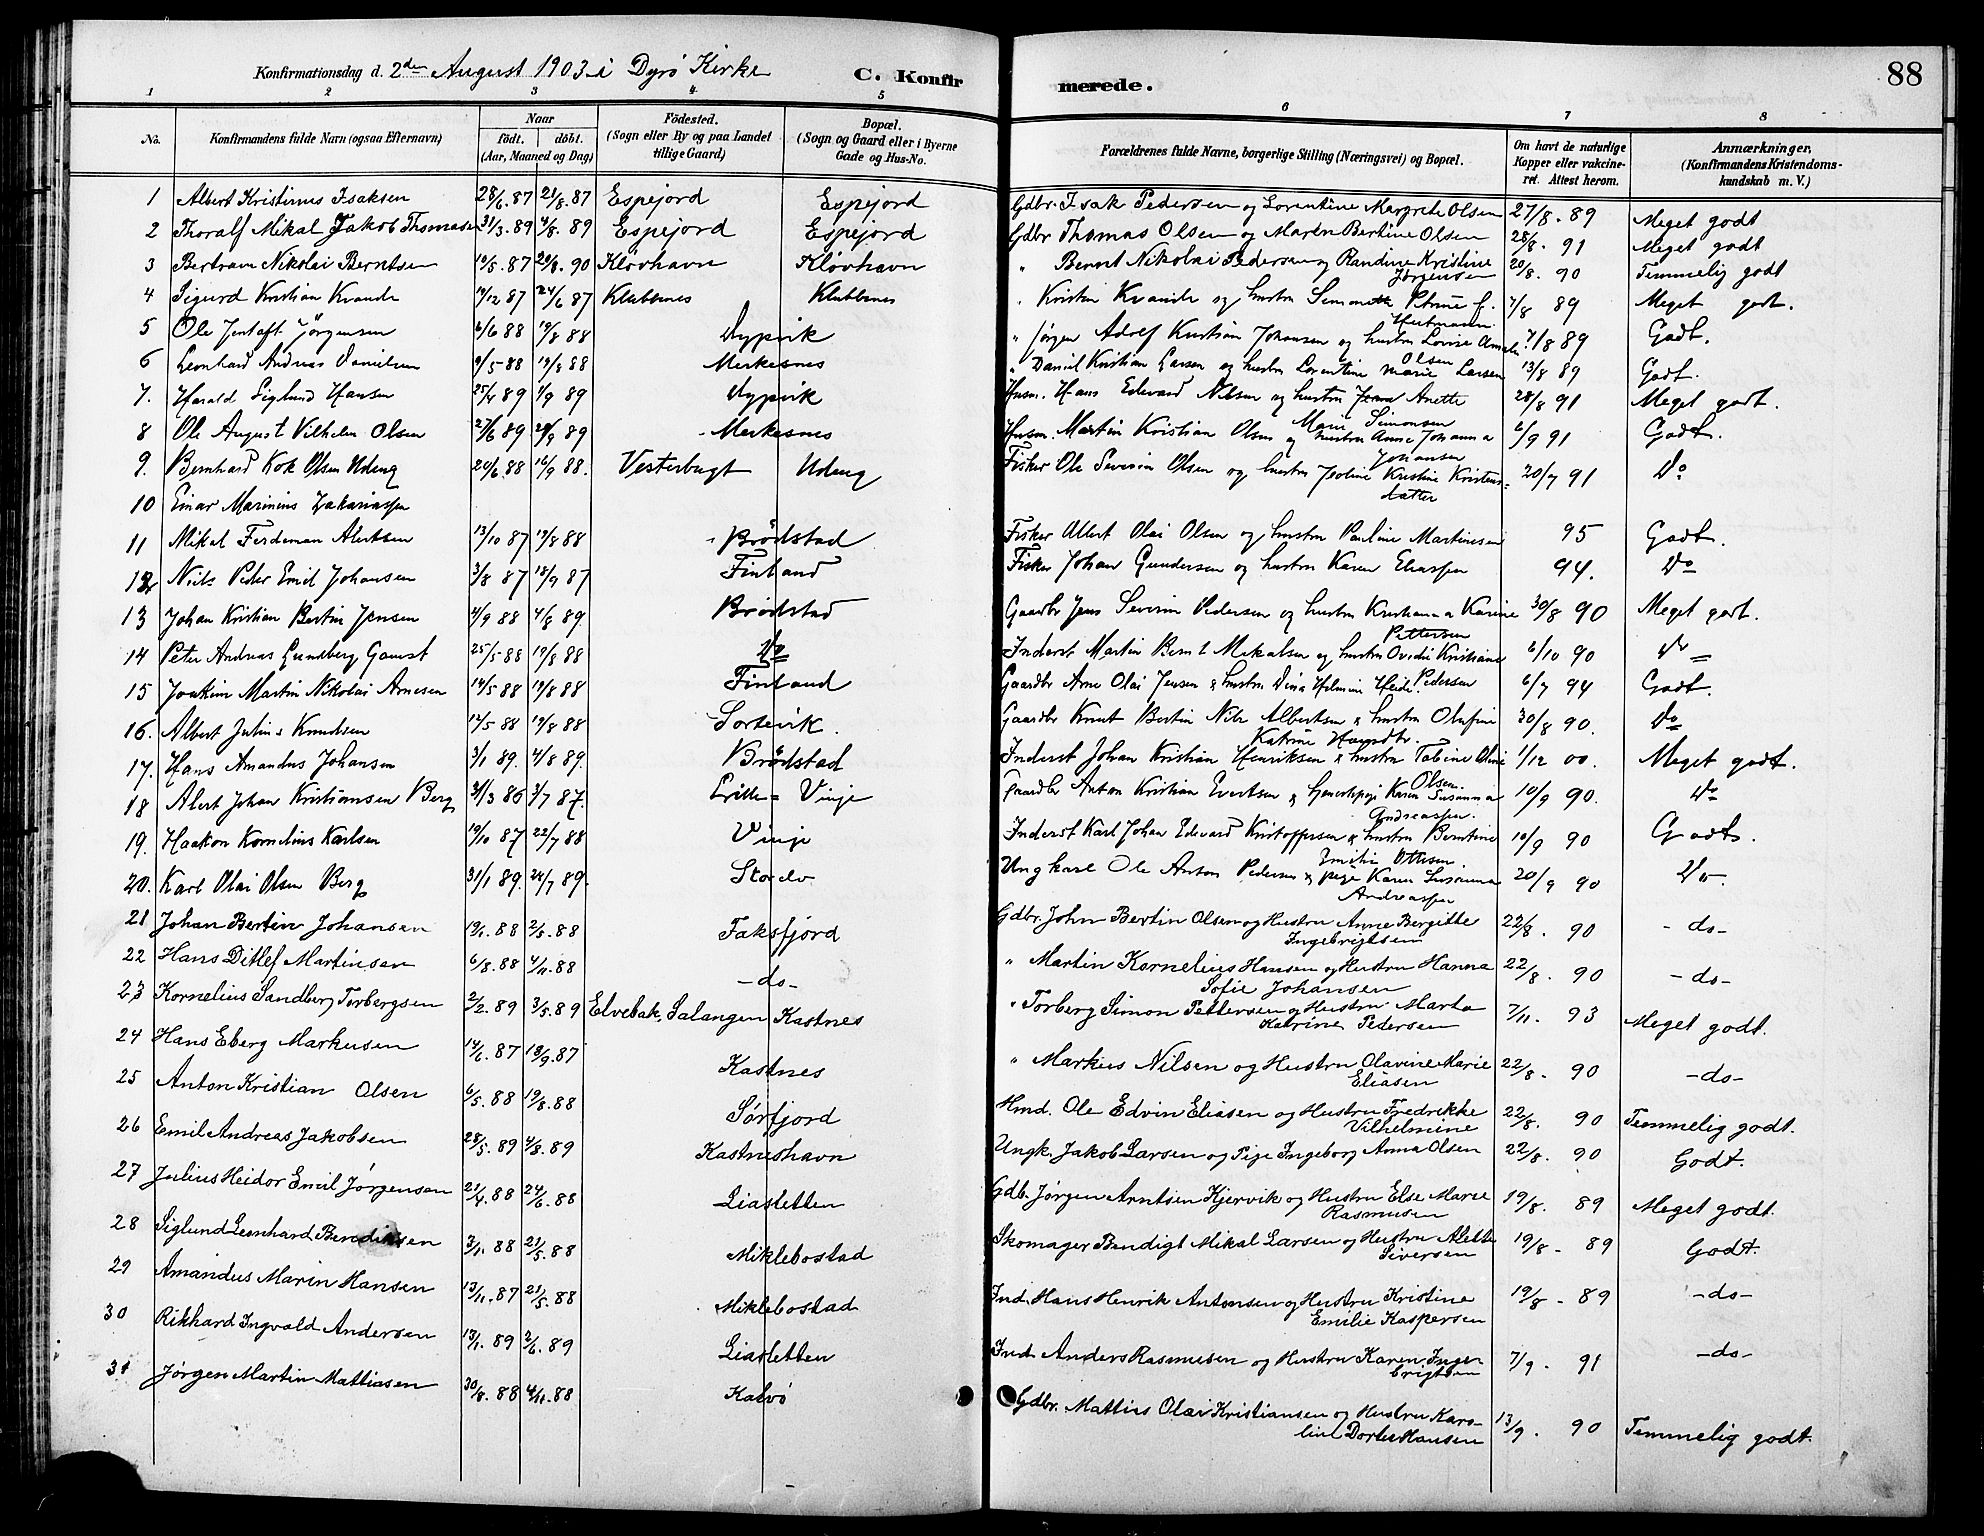 Konfirmationsdag d. 2den August 1903 i Dyrö Kirke C. Konfirmerede. 88
1 2 3 4 5 6 7 8
No. Konfirmandens fulde Navn (ogsaa Efternavn) Naar født. døbt. (Aar, Maaned og Dag) Fødested. (Sogn eller By og paa Landet tillige Gaard) Bopæl. (Sogn og Gaard eller i Byerne Gade og Hus-No. Forældrenes fulde Navne, borgerlige Stilling (Næringsvei) og Bopæl. Om havt de naturlige Kopper eller vakcineret. Attest herom. Anmærkninger, (Konfirmandens Kristendomskundskab m. V.)
1 Albert Kristinus Isaksen 28/6.87 21/8.87 Espejord Espejord Gdbr. Isak Pedersen og Lorentine Margrete Olsen 27/8. 89 Meget godt
2 Thoralf Mikal Jakob Thomasen 31/3.89 4/8. 89 Espejord Espejord Gdbr Thomas Olsen og Maren Bertine Olsen 28/8. 91 Meget godt
3 Bertram Nikolai Berntsen 87 90 Kløvhavn Kløvhavn " Bernt Nikolai Pedersen og Randine Kristine Jørgensen 20/8. 90 Temmelig godt
4 Sigurd Kristian Kvande 87 24/6 87 Klubbnes Klubbnes " Kristen Kvande og hustru Petrine f. 7/8 89 Meget godt.
5 Ole Jentoft Jörgensen 6/6 88 19/8 88 Dypvik " Jörgen Adolf Kristian Johansen og hustru Lovise Olsen 89 Godt.
6 Leonhard Andreas Danielsen 9/5-88 19/8 88 Merkesnes " Daniel Kristian Larsen og hustru Lorentine Marie Larsen 13/8 89 Godt.
7. Harald Siglund Hansen 25/4 89 1/9 89 Dypvik Husm. Hans Edevard Nilsen og hustru Anette Marie Simonsen 28/8 91 Meget godt.
8 Ole August Vilhelm Olsen 27/6 89 89 Merkesnes Husm. Martin Kristian Olsen og hustru Anne Johanna Johansen 6/9 91 Godt.
9. Bernhard Kok Olsen Udeng 20/6.88 16/9 88. Vesterbugt Udeng Fisker Ole Severin Olsen og hustru Kristine Kristensdatter 20/7 91 Do
10 Einar Marinius Zakariassen
11 Mikal Ferdeman Albertsen 13/10 87 19/8 88 Brödstad Fisker Albert Olai Olsen og hustru Pauline Martinsen 95 Godt.
12 Nils Peder Emil Johansen 3/8 87 18/9 87 Finland Fisker Johan Gundersen og hustru Karen Eliassen 94. Do
13 Johan Kristian Bertin Jensen 4/9 88 4/8 89. Brödstad Gaardbr Jens Severin Pedersen og hustru Karine Pettersen 30/8 90 Meget godt.
14 Peter Andreas Lundberg Gamst 25/5-88 19/8 88 Do Inderst Martin Bernt Mikalsen og hustru Ovidie Kristiane Pedersen 6/10 90 Do
15 Joakim Martin Nikolai Arnesen 14/5 88 19/8 88 Finland Gaardbr Arne Olai Jensen & hustru Dina 6/7 94 Godt.
16. Albert Julius Knudsen 12/5 88 19/8 88 Sortevik. Gaardbr Knut Bertin Nils Albertsen & hustru Olufine Katrine 30/8 90. Do
17. Hans Amandus Johansen 3/1 89. 4/8 89. Brödstad Inderst Johan Kristian Henriksen & hustru Tobine Oline Olsen. 1/12 00. Meget godt.
18 Albert Johan Kristiansen Berg 31/3 86 3/7 87. Lille-Vinje Gaardbr Anton Kristian Evertsen & Karen Susanna Andreassen. 10/9 90. Do
19. Haakon Kornelius Karlsen 19/10 87 22/7 88 Vinje Inderst Karl Johan Edevard Kristoffersen & hustru Berntine Emilie Ottesen. 10/9 90 Godt.
20. Karl Olai Olsen Berg 31/1 89. 24/7 89. Ungkarl Ole Anton Pedersen & pige Karen Susanna Andreassen 20/9 90 Do.
21 Johan Bertin Johansen 88 2/5.88 Faksfjord Gdbr. John Bertin Olsen og Hustru Anne Bergitte Ingebrigtsen 22/8. 90 -do-
22 Hans Ditlef Martinsen 6/8.88 4/11.88 -do- " Martin Kornelius Hansen og Hustru Hanna Sofie Johansen 22/8. 90 -do-
23 Kornelius Sandberg Torbergsen 2/2.89 3/5.89 Elvebak, Salangen Kastnes " Torberg Simon Pettersen og Hustru Marta Katrine Pedersen 7/11. 93 Meget godt.
24 Hans Eberg Markusen 14/6.87 18/9.87 Kastnes " Markus Nilsen og Hustru Olavine Marie Eliasen 22/8. 90 -do-
25 Anton Kristian Olsen 6/5.88 19/8.88 Sörfjord Hmd. Ole Edvin Eliasen og Hustru Fredrikke Vilhelmine 22/8. 90 Temmelig godt.
26 Emil Andreas Jakobsen 28/5.89 4/8.89 Kastneshavn Ungk. Jakob Larsen og Pige Ingeborg Anna Olsen 22/8. 90 Godt.
27 Julius Heidor Emil Jørgensen 21/4.88 24/6.88 Liasletten Gdb. Jørgen Arntsen Kjervik og Hustru Else Marie Rasmusen 19/8. 89 Meget godt.
28 Siglund Leonhard Bendiksen 3/1.88 21/5.88 Miklebostad Skomager Bendigt Mikal Larsen og Hustru Alette Siversen 19/8- 89 Godt.
29 Amandus Marin Hansen 13/11.87 21/5.88 Miklebostad Ind. Hans Henrik Antonsen og Hustru Kristine Emilie Kaspersen 19/8- 89 -do-
30 Rikhard Ingvald Andersen 13/1.89 2/6.89 Liasletten Ind. Anders Rasmusen og Hustru Karen Ingebrigtsen 7/9. 91 -do-
31 Jørgen Martin Mattiasen 30/8.88 4/11.88 Kalvö Gdbr. Mattias Olai Kristiansen og Hustru Karoline Dortea Hansen 13/9. 90 Temmelig godt.